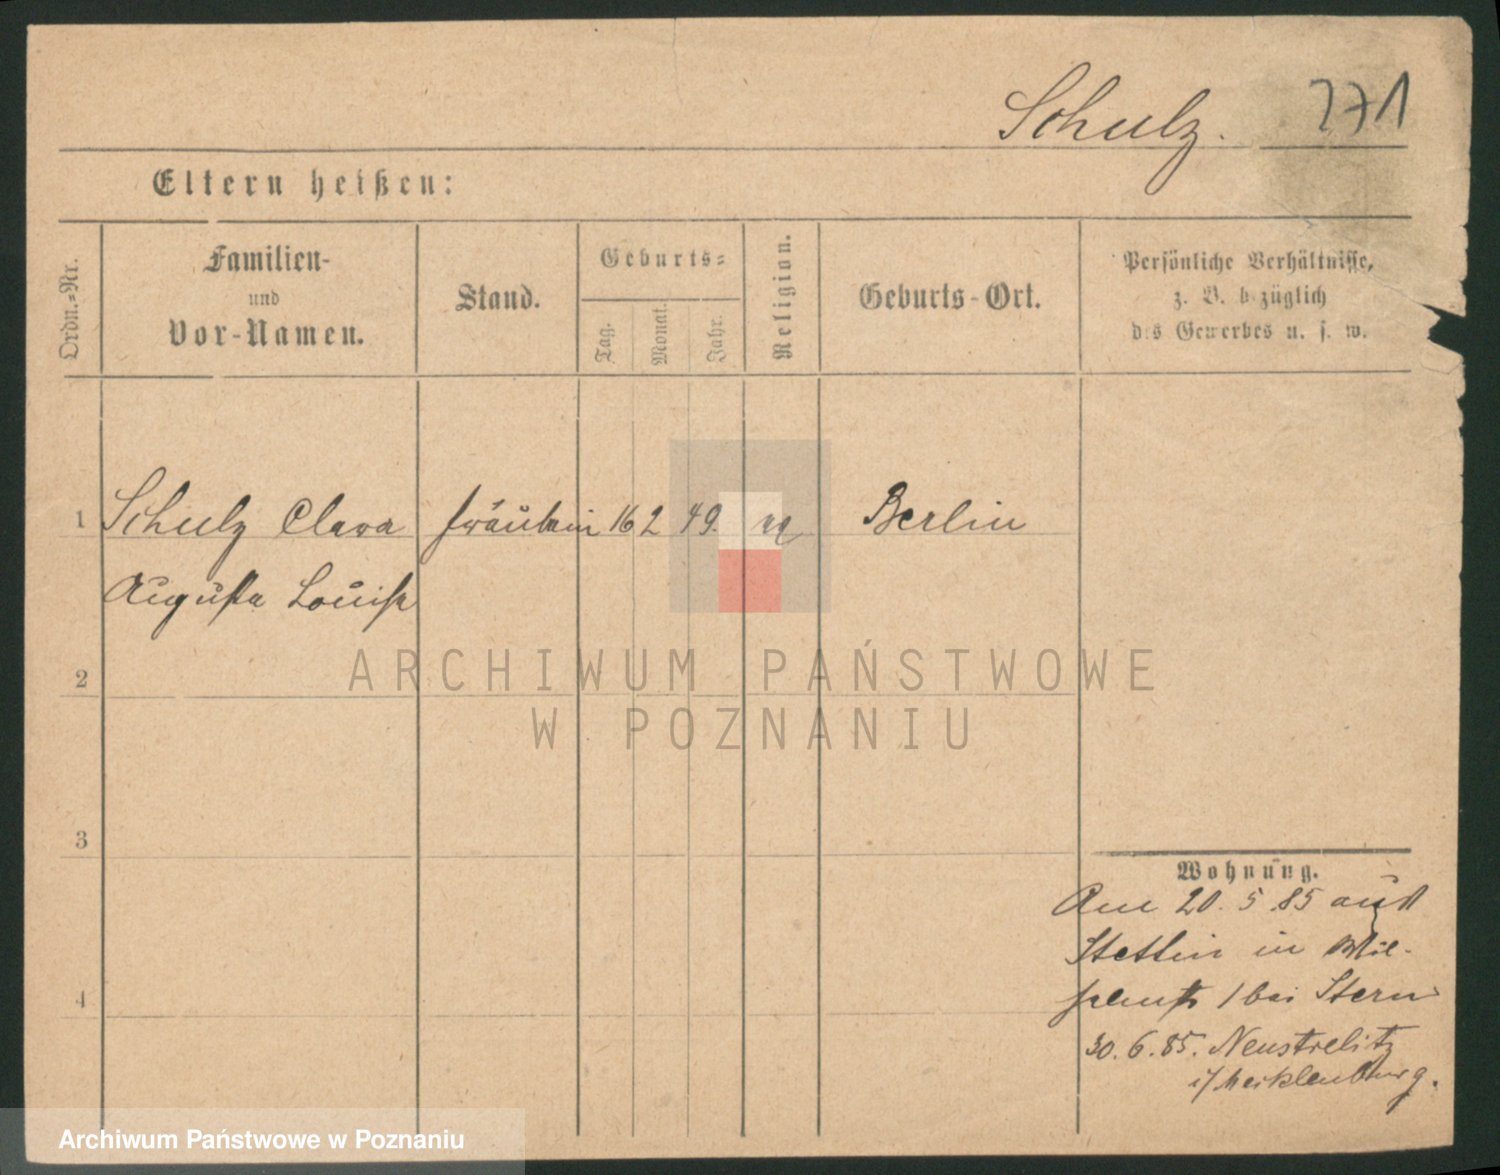 Schulz. 271
Eltern heißen:
Ordn.=Nr.
Familien-
und
Vor-Namen.
Stand.
Geburts=
Tag.
Monat.
Jahr.
Religion.
Geburts-Ort.
Persönliche Verhältnisse,
z. B. bezüglich
des Gewerbes u. s. w.
1 Schulz Clara Fräulein 16 2 49. Berlin
Augusta Louise
2
3
4
Wohnung.
Am 20. 5 85 aus
Stettin in
1 bei Stern
30. 6. 85. Neustrelitz
i/Mecklenburg.
ARCHIWUM PAŃSTWOWE
W POZNANIU
Archiwum Państwowe w Poznaniu